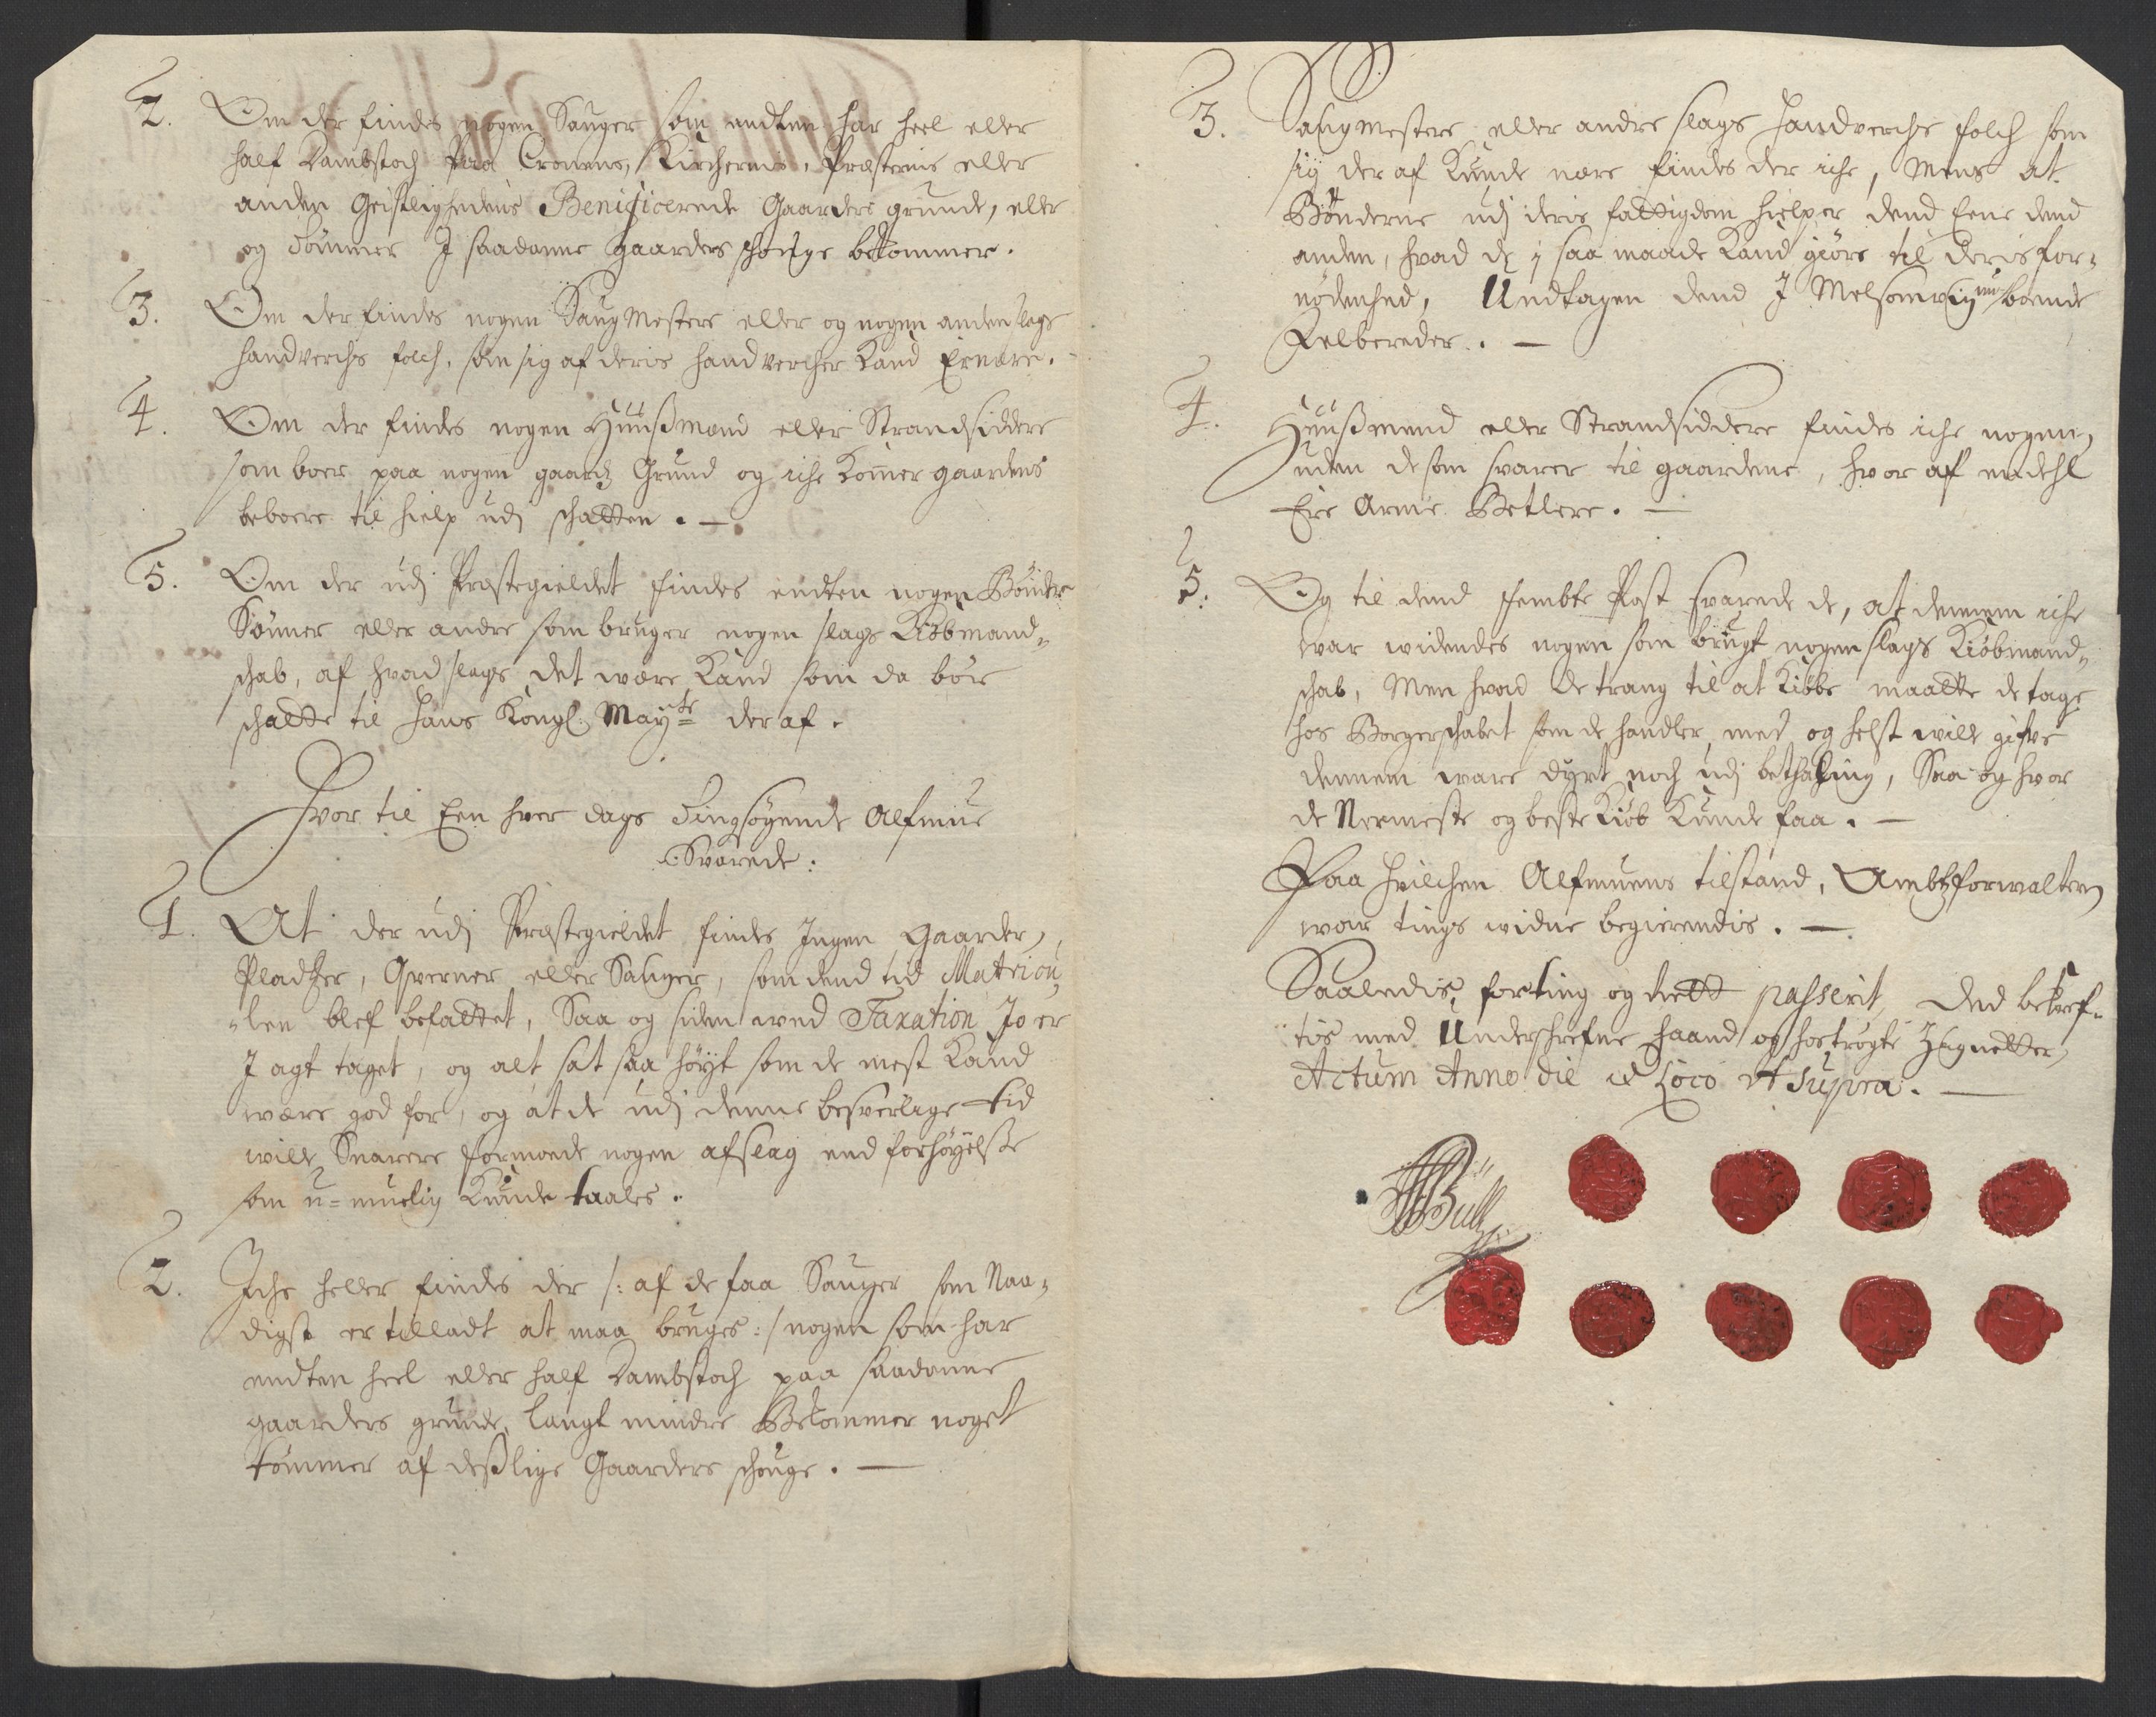 2. Om der findes nogen Sauger som endten har heel eller
half Dambstoch paa Cronens, Kirchernis, Præsternis eller
anden Geistlighedens Benificerede Gaarders grunde, eller
og Tømmer I saadanne gaarders schouge bekommer.
3. Om der findes nogen Saug Mestere eller og nogen anden slags
handverchs folch, som sig af deris handvercher Kand Ernære.
4. Om der findes nogen Huußmænd eller Strandsiddere
som boer paa nogen gaardz Grund og iche Komer gaardens
beboere til hielp udj schatten. —
5. Om der udj Præstegieldet findes endten nogen Bønder
Sønner eller andre som bruger nogen slags Kiøbmand„
schab, af hvad slags det være Kand som da bør
schatte til Hans Kongl: Mayts der af.
Hvor til Een hver dags Tingsøgende Almue
Svarede:
1. At der udj Præstegieldet findes Ingen Gaarder,
Pladtzer, Qverner eller Sauger, som dend tid Matricu„
„len blef befattet, Saa og siden ved Taxation Jo er
I agt taget, og alt sat saa høyt som de mest Kand
være god for, og at de udj denne besverlige tid
vilde Snarere formode nogen afslag end forhøyelse
som u=muelig Kunde taales.
2. Iche heller findes der /: af de faa Sauger som Naa„
digst er tilladt at maa bruges :/ nogen som har
endten heel eller half Dambstoch paa saadanne
gaarders grunde, langt mindre Bekommer noget
tømmer af deßlige Gaarders schouge. —
3. Saugmestere eller andre slags Handverchs folch som
sig der af Kunde nære findes der iche, Mens at
Bønderne udj deris fattigdom hielper dend Eene dend
anden, hvad de j saa maade Kand giøre til deris for„
nødenhed, Undtagen dend I Melsomvig boende
Felbereder. —
4. Huußmend eller Strandsiddere findes iche nogen,
uden de som svarer til gaardene, hvor af endehl
Ere Arme Betlere. —
5. Og til dend fembte Post svarede de, at dennem iche
var videndes nogen som brugt nogen slags Kiøbmand„
schab, Men hvad de trang til at Kiøbe maatte de tage
hos Borgerschabet som de handler med og helst vilde gifve
dennem vare dyrt noch udj bethaling, Saa og hvor
de Nermeste og beste Kiøb Kunde faa. —
Paa hvilchen Almuens tilstand, Ambtzforvalteren
var tings vidne begierendis. —
Saaledis for ting og rett passerit, Ded bekref„
tis med Underschrefne haand og hostrøgte Zignetter,
Actum Anno die et Loco ut supra. —